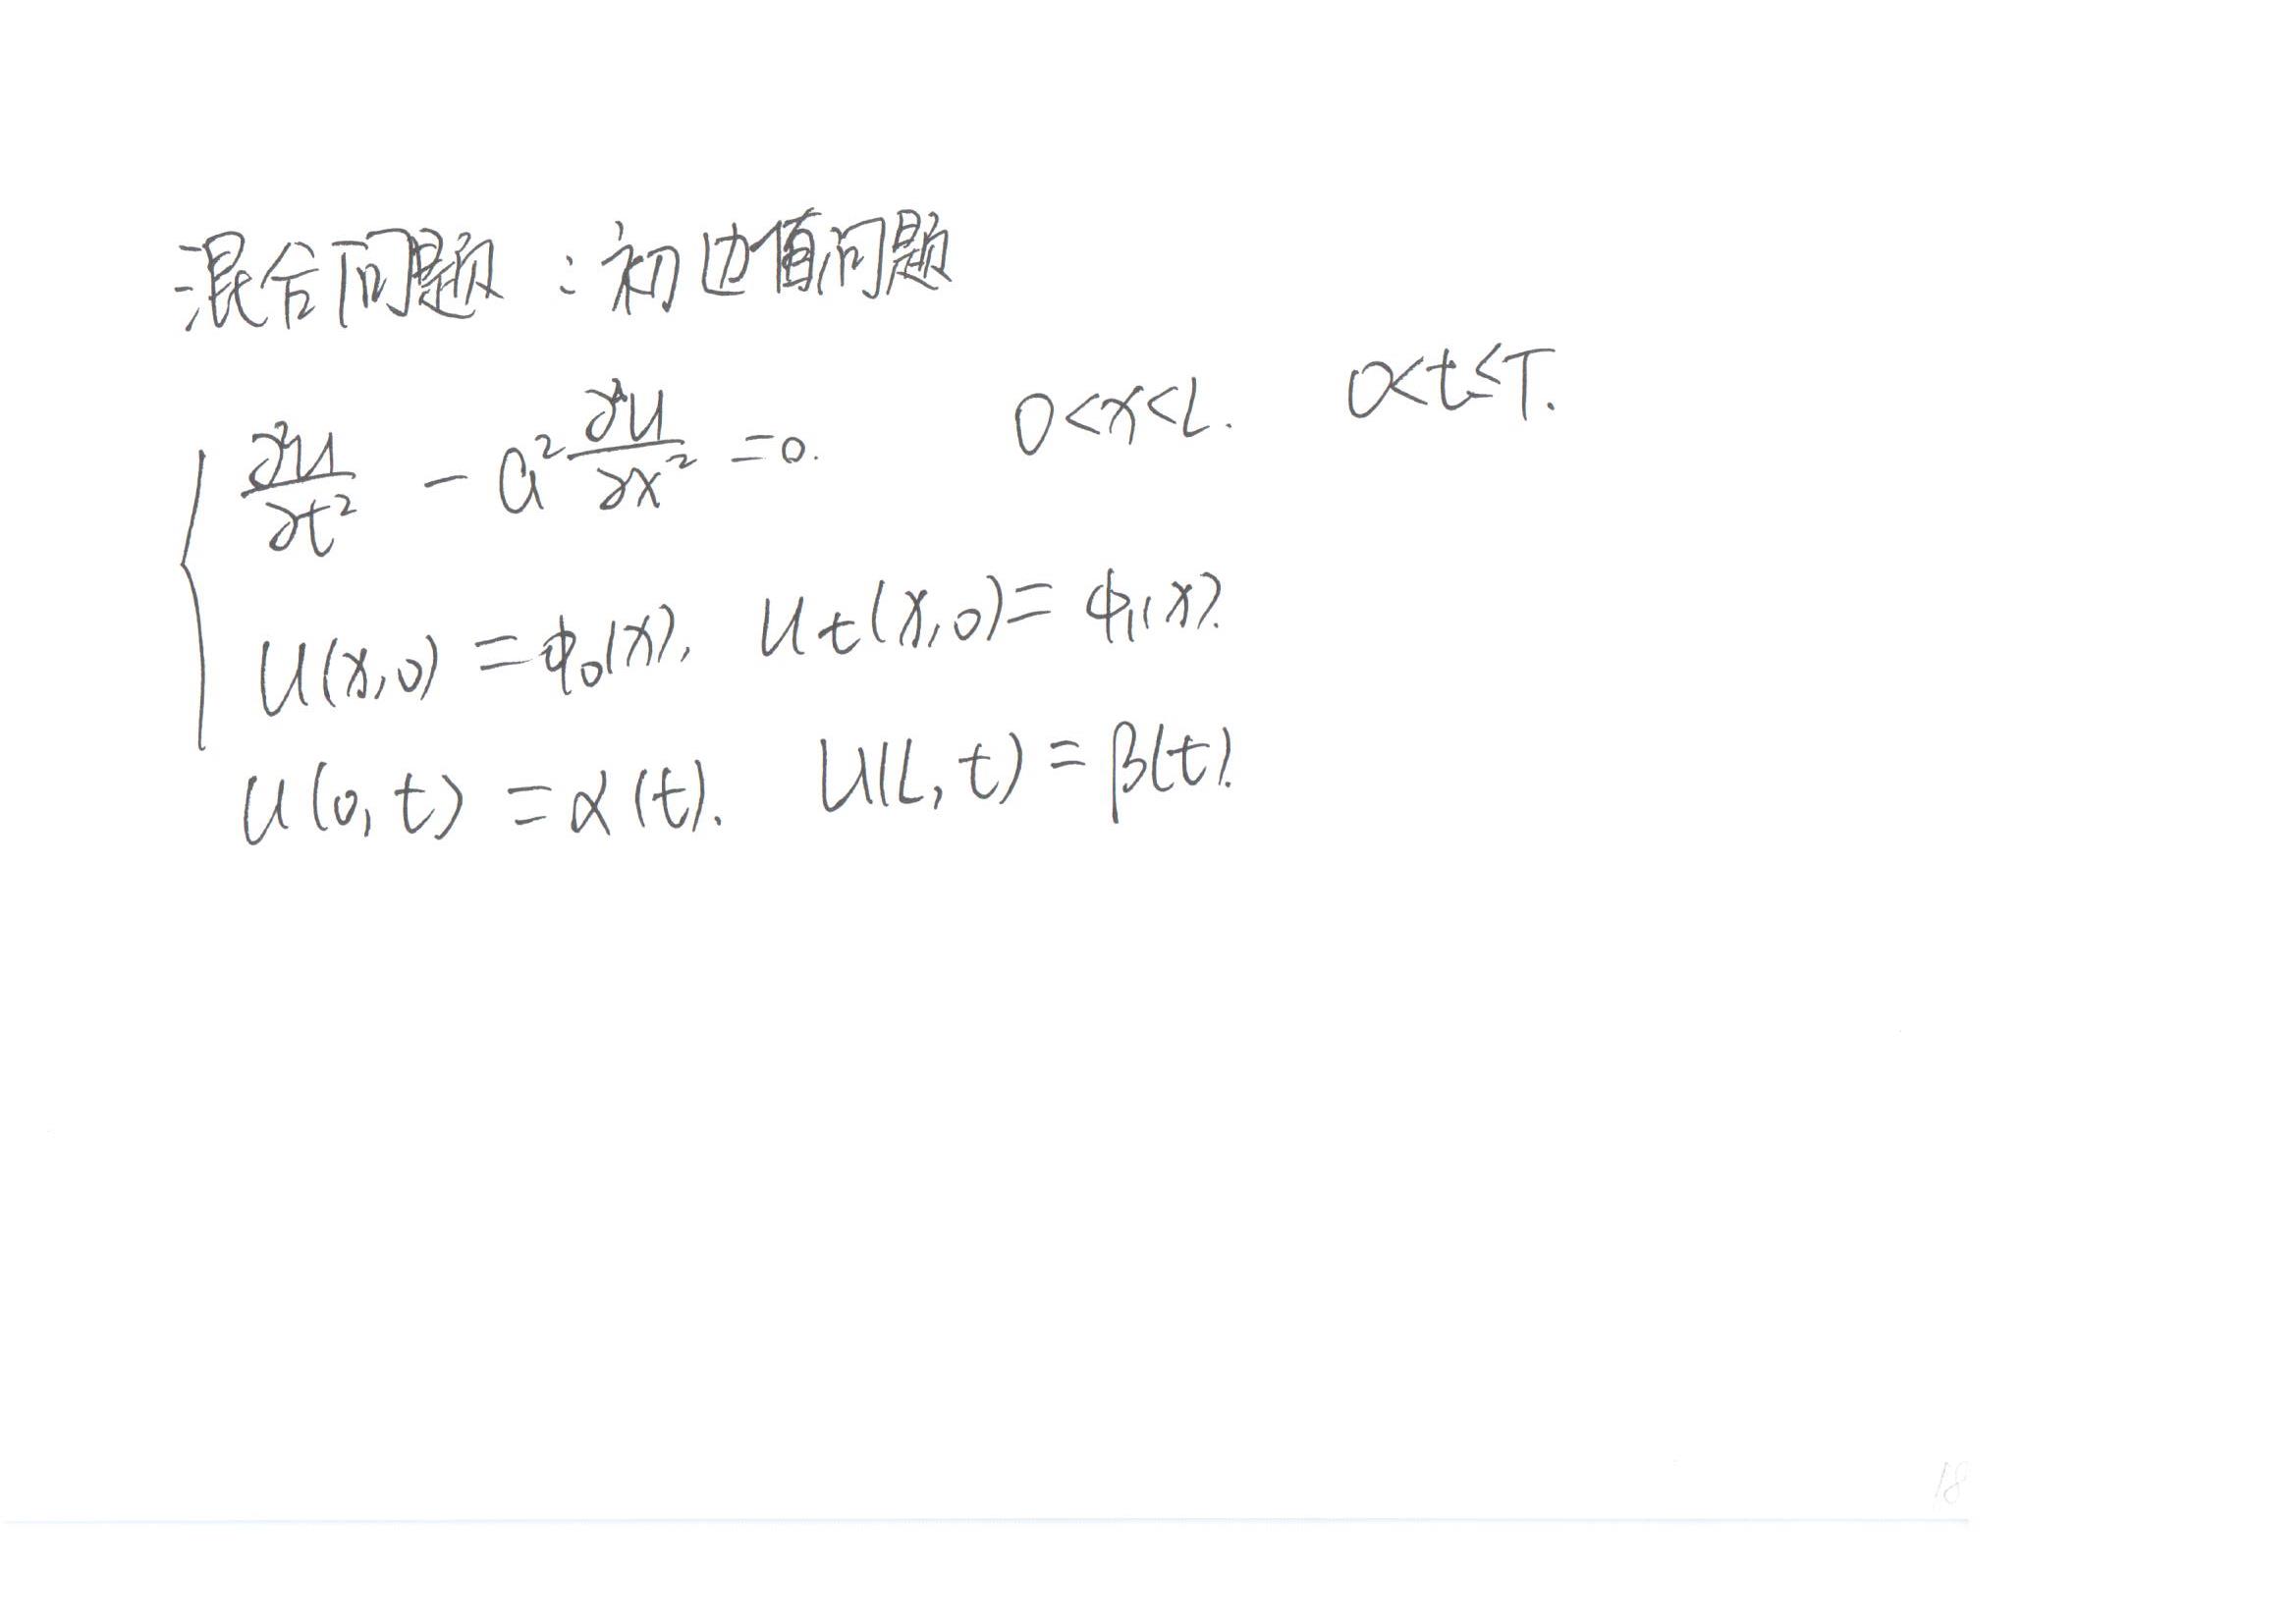 混合问题：初边值问题
∂²u/∂t² - a² ∂²u/∂x² = 0. 0<x<L. 0<t≤T.
u(x,0) = φ₀(x), u_t(x,0) = φ₁(x).
u(0,t) = α(t). u(L,t) = β(t).
18